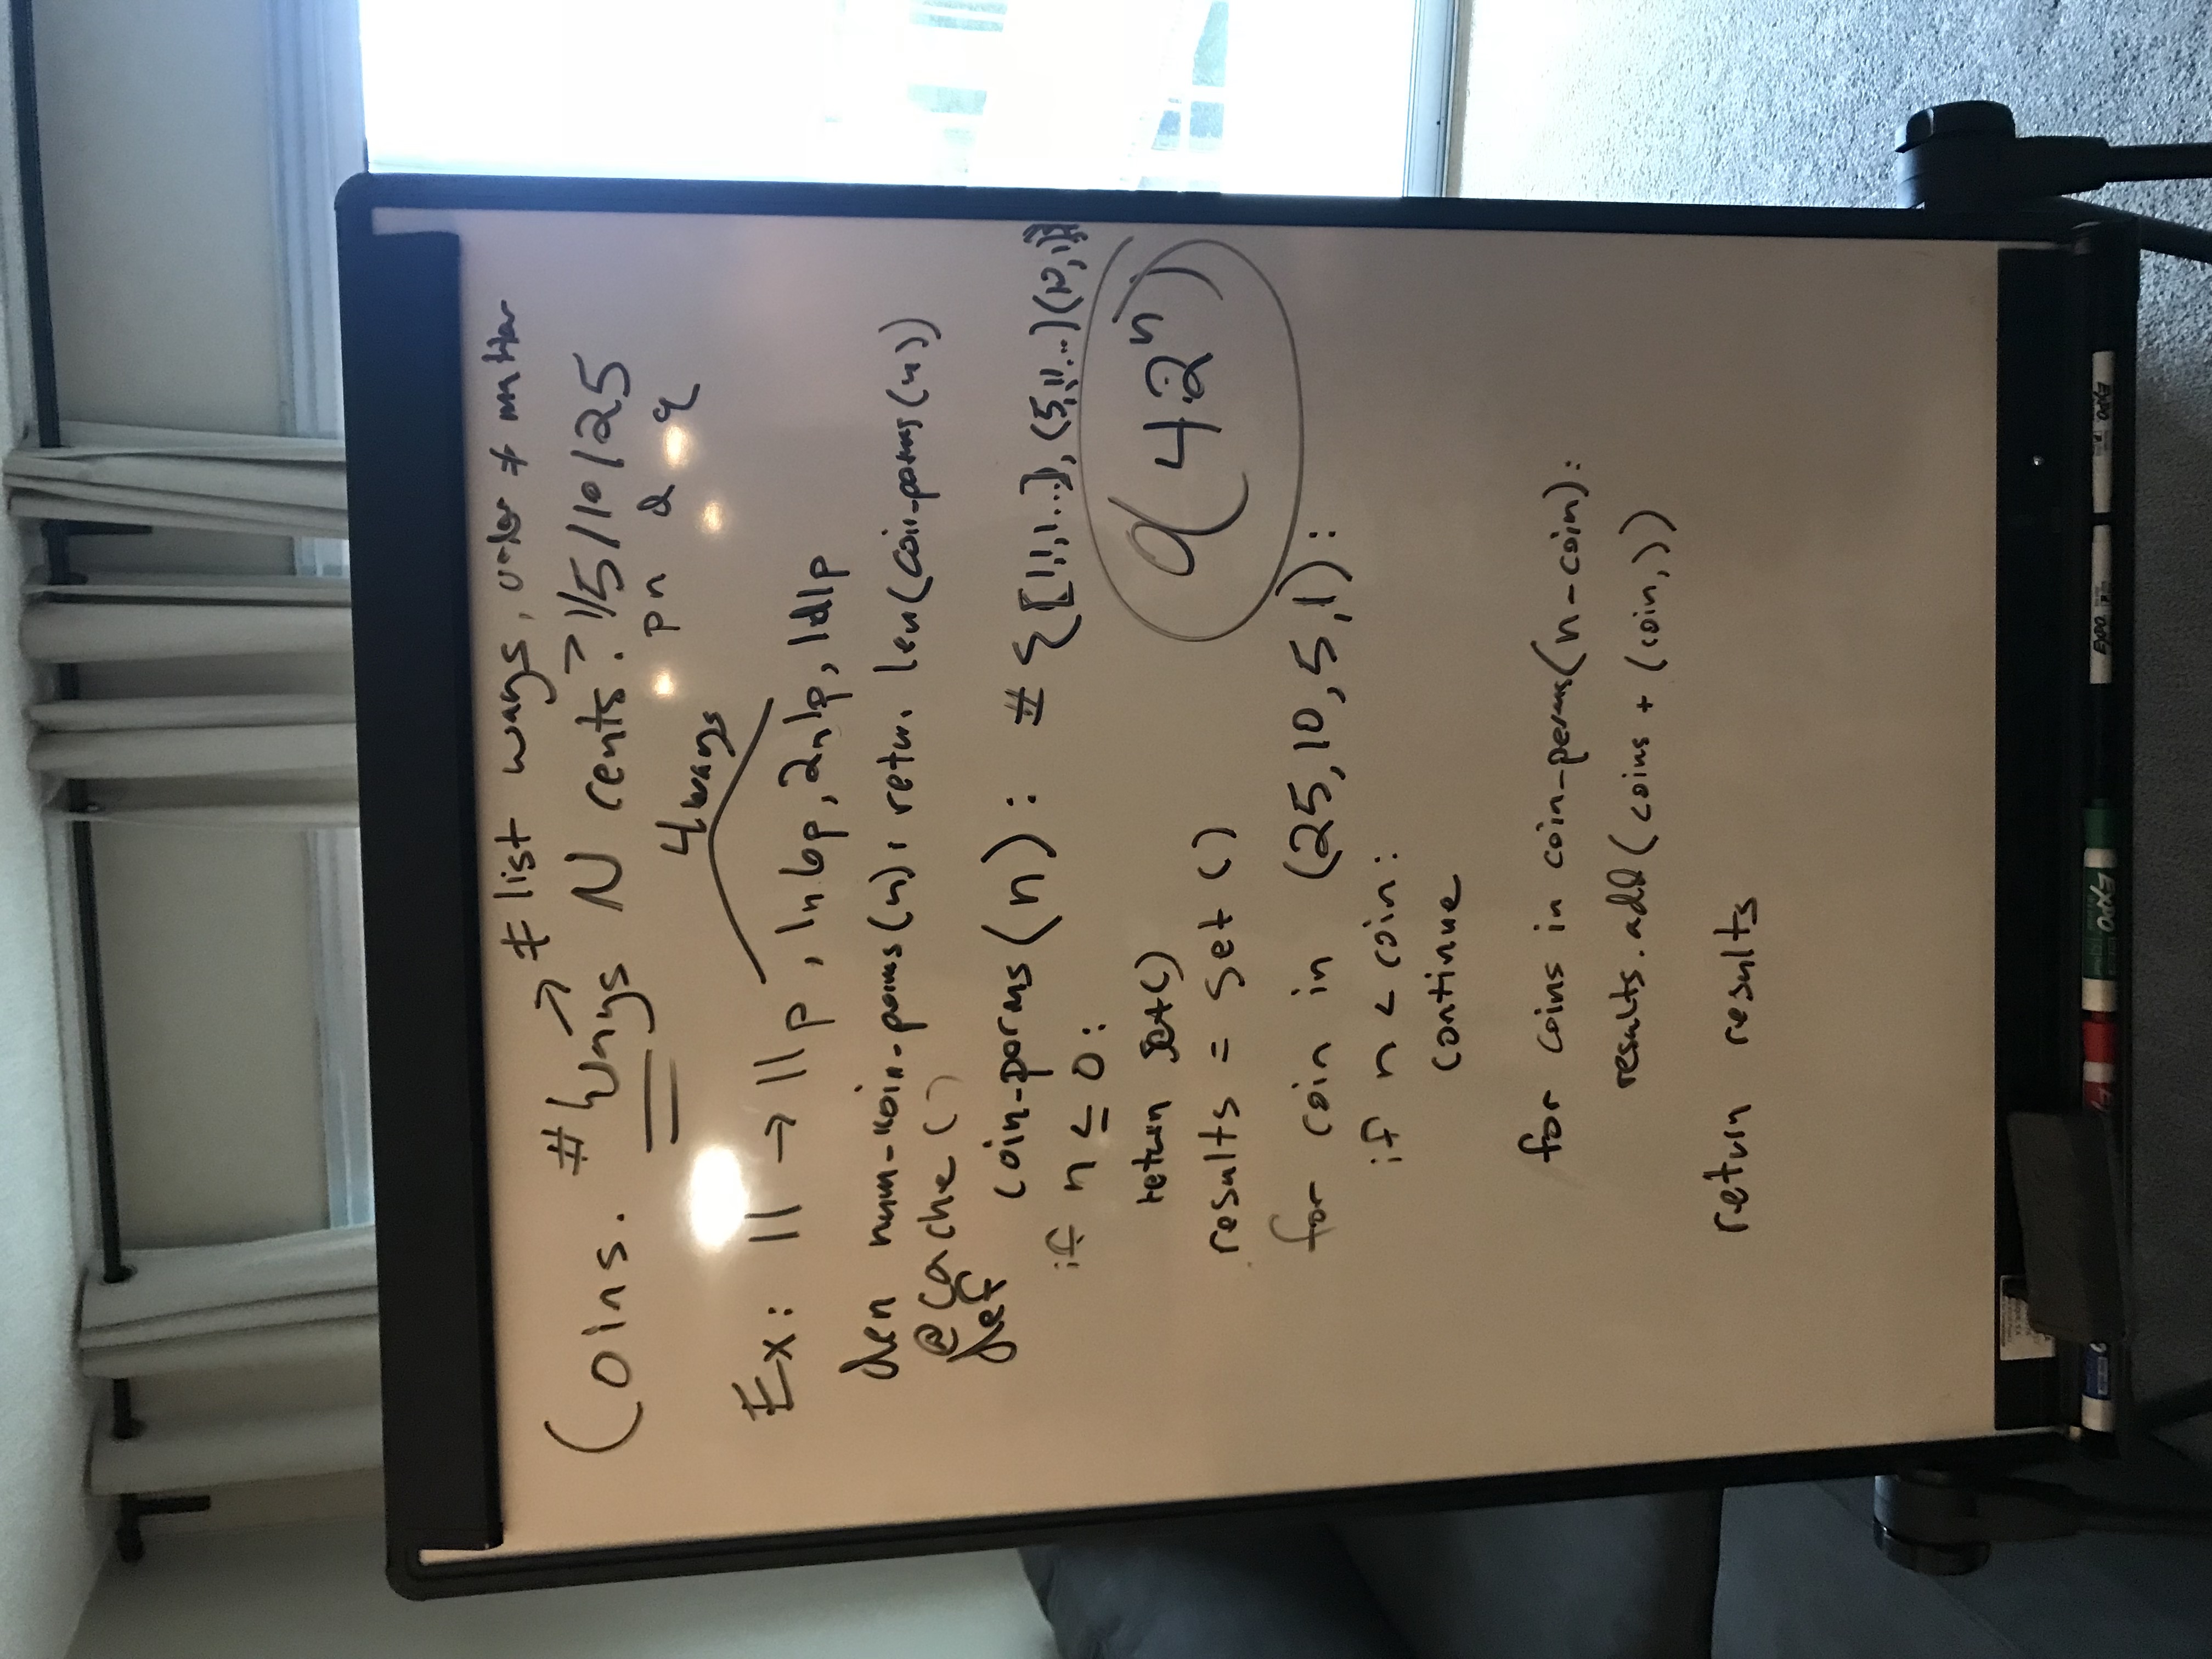 ≠ list ways, order ≠ matter
Coins. # Ways → N cents? 1/5/10/25
p n d q
4 ways
Ex: 11 → 11p, 1n6p, 2n1p, 1d1p
den num-coin-perms(n): return len(coin-perms(n))
@cache()
def coin-perms(n): # {[1,1,1...], (5,1,1...)(10,1)}
if n ≤ 0:
return set()
O(4·2ⁿ)
results = set()
for coin in (25,10,5,1):
if n < coin:
continue
for coins in coin-perms(n-coin):
results.add(coins + (coin,))
return results
EXPO
EXPO
EXPO